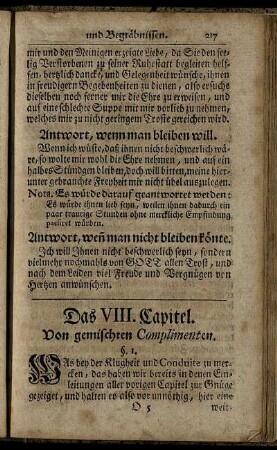 und Begräbnissen. 217
mir und den Meinigen erzeigte Liebe, da Sie den see-
lig Verstorbenen zu seiner Ruhestatt begleiten helf-
fen, hertzlich danck, und Gelegenheit wünsche, ihnen
in freudigern Begebenheiten zu dienen, also ersuche
dieselben noch ferner mir die Ehre zu erweisen, und
auf eine schlechte Suppe mir mir vorlieb zu nehmen,
welches mir zu nicht geringem Troste gereichen wird.
Antwort, wenn man bleiben will.
Wenn ich wüste, daß ihnen nicht beschwerlich wä-
re, so wolte mir wohl die Ehre nehmen, und auf ein
halbes Stündgen bleiben, doch will bitten, meine hier-
unter gebrauchte Freyheit mir nicht übel auszulegen.
Nota. Es würde darauf geantwortet werden:
Es würde ihnen lieb seyn, weilen ihnen dadurch ein
paar traurige Stunden ohne merckliche Empfindung
passiret würden.
Antwort, weñ man nicht bleiben könte.
Ich will Ihnen nicht beschwerlich seyn, sondern
vielmehr nochmahls von GOTT allen Trost, und
nach dem Leiden viel Freude und Vergnügen von
Hertzen anwünschen.
Das VIII. Capitel.
Von gemischten Complimenten.
§. 1.
WAs bey der Klugheit und Conduite zu mer-
cken, das haben wir bereits in denen Ein-
leitungen aller vorigen Capitel zur Gnüge
gezeiget, und halten es also vor unnöthig, hier eine
O 5 weit-